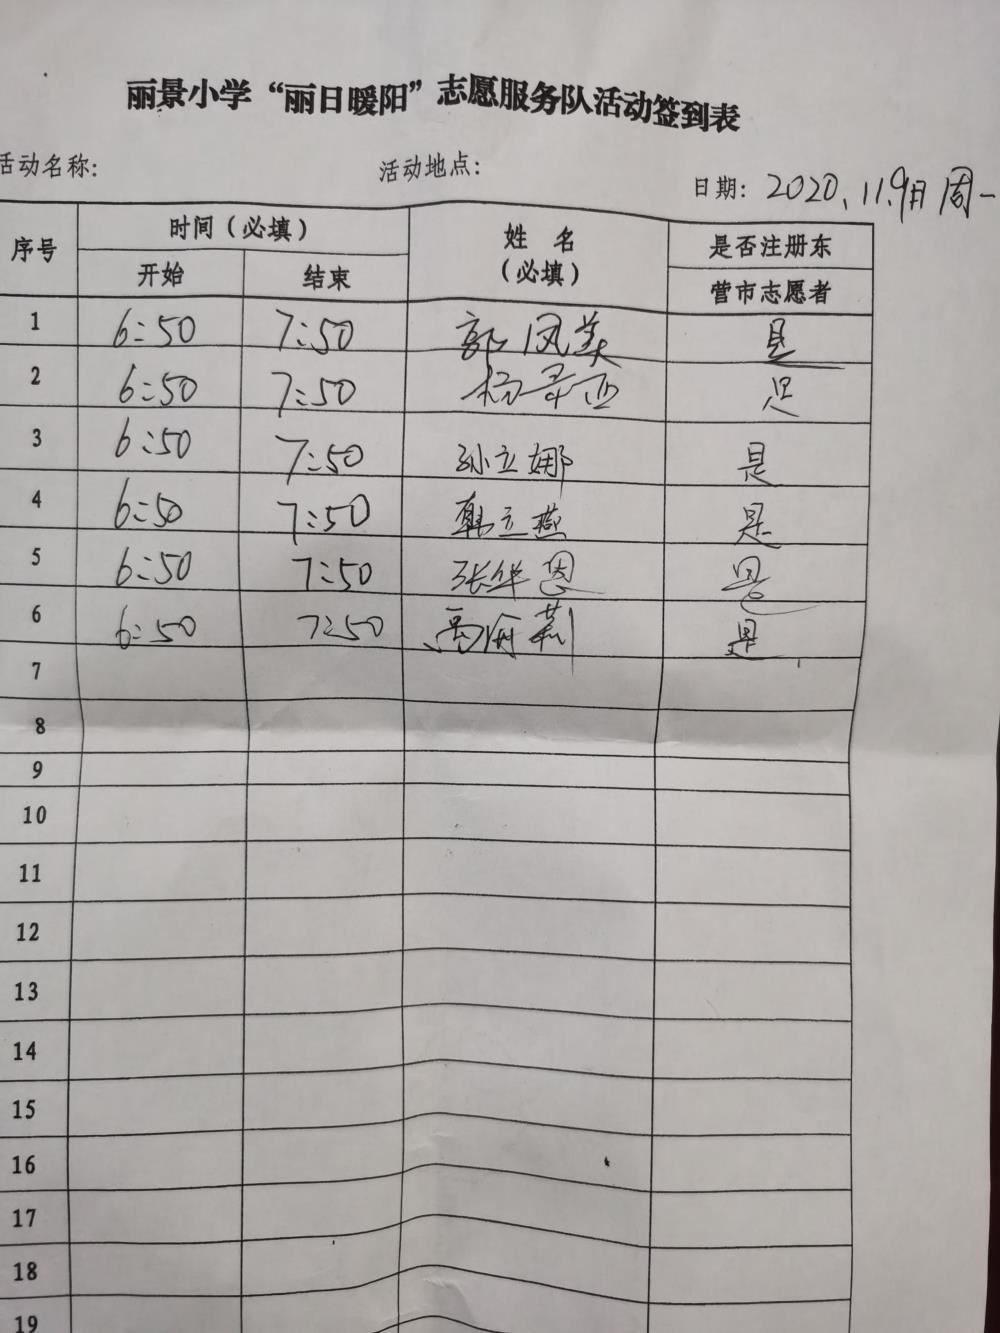 丽景小学“丽日暖阳”志愿服务队活动签到表
活动名称: 活动地点: 日期: 2020.11.9日 周一
序号 时间(必填) 姓 名 是否注册东
开始 结束 (必填) 营市志愿者
1 6:50 7:50 郭凤美 是
2 6:50 7:50 杨 是
3 6:50 7:50 孙立娜 是
4 6:50 7:50 韩立燕 是
5 6:50 7:50 张华恩 是
6 6:50 7:50 是
7
8
9
10
11
12
13
14
15
16
17
18
19